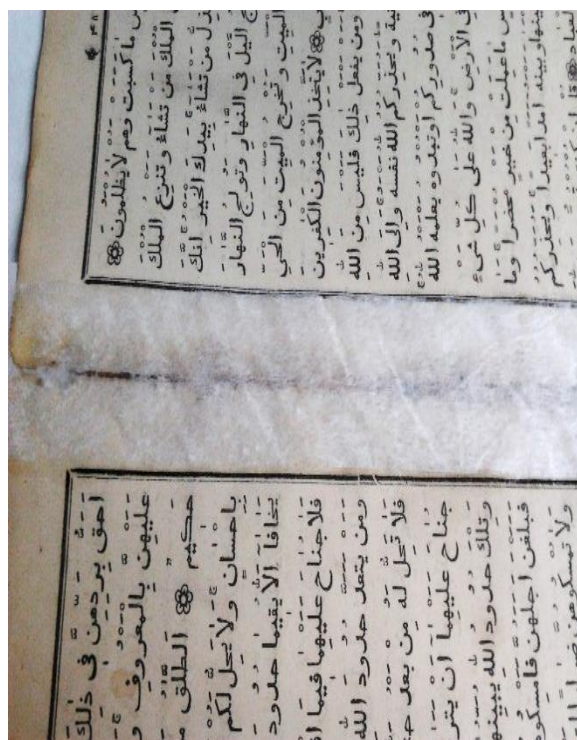 ماكسبت وهم لايظلمون ۝
الملك من تشاء وتنزع الملك
من تشاء بيدك الخير انك
اليل فى النهار وتولج النهار
الميت وتخرج الميت من الحي
۝ لايتخذ المؤمنون الكفرين
ومن يفعل ذلك فليس من الله
ويحذركم الله نفسه والى الله
فى صدوركم اوتبدوه يعلمه الله
فى الارض والله على كل شيء
ماعملت من خير محضرا وما
بينهاوبينه امدابعيدا ويحذركم
احق بردهن فى ذلك
عليهن بالمعروف و
حكيم ۝ الطلق
باحسان ولايحل لكم
يخافا الايقيما حدود
فلاجناح عليهما فيما
ومن يتعد حدود الله
فلاتحل له من بعد
جناح عليهما ان
وتلك حدود الله يبينها
فبلغن اجلهن فامسكو
ولاتمسكوهن